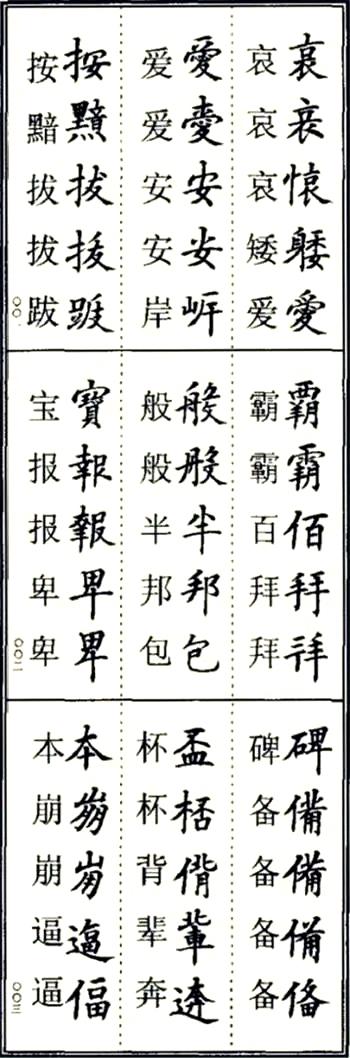 哀愛
哀哀哀矮爱
愛安安
爱爱安安岸
按拔拔
按黯拔拔跋
〇〇一
覇霸佰拜拜
霸霸百拜拜
般般半邦包
般般半邦包
寶報報卑卑
宝报报卑卑
〇〇二
碑備備備俻
碑备备备备
盃桮偝輩逩
杯杯背辈奔
本崩崩逼偪
本崩崩逼逼
〇〇三